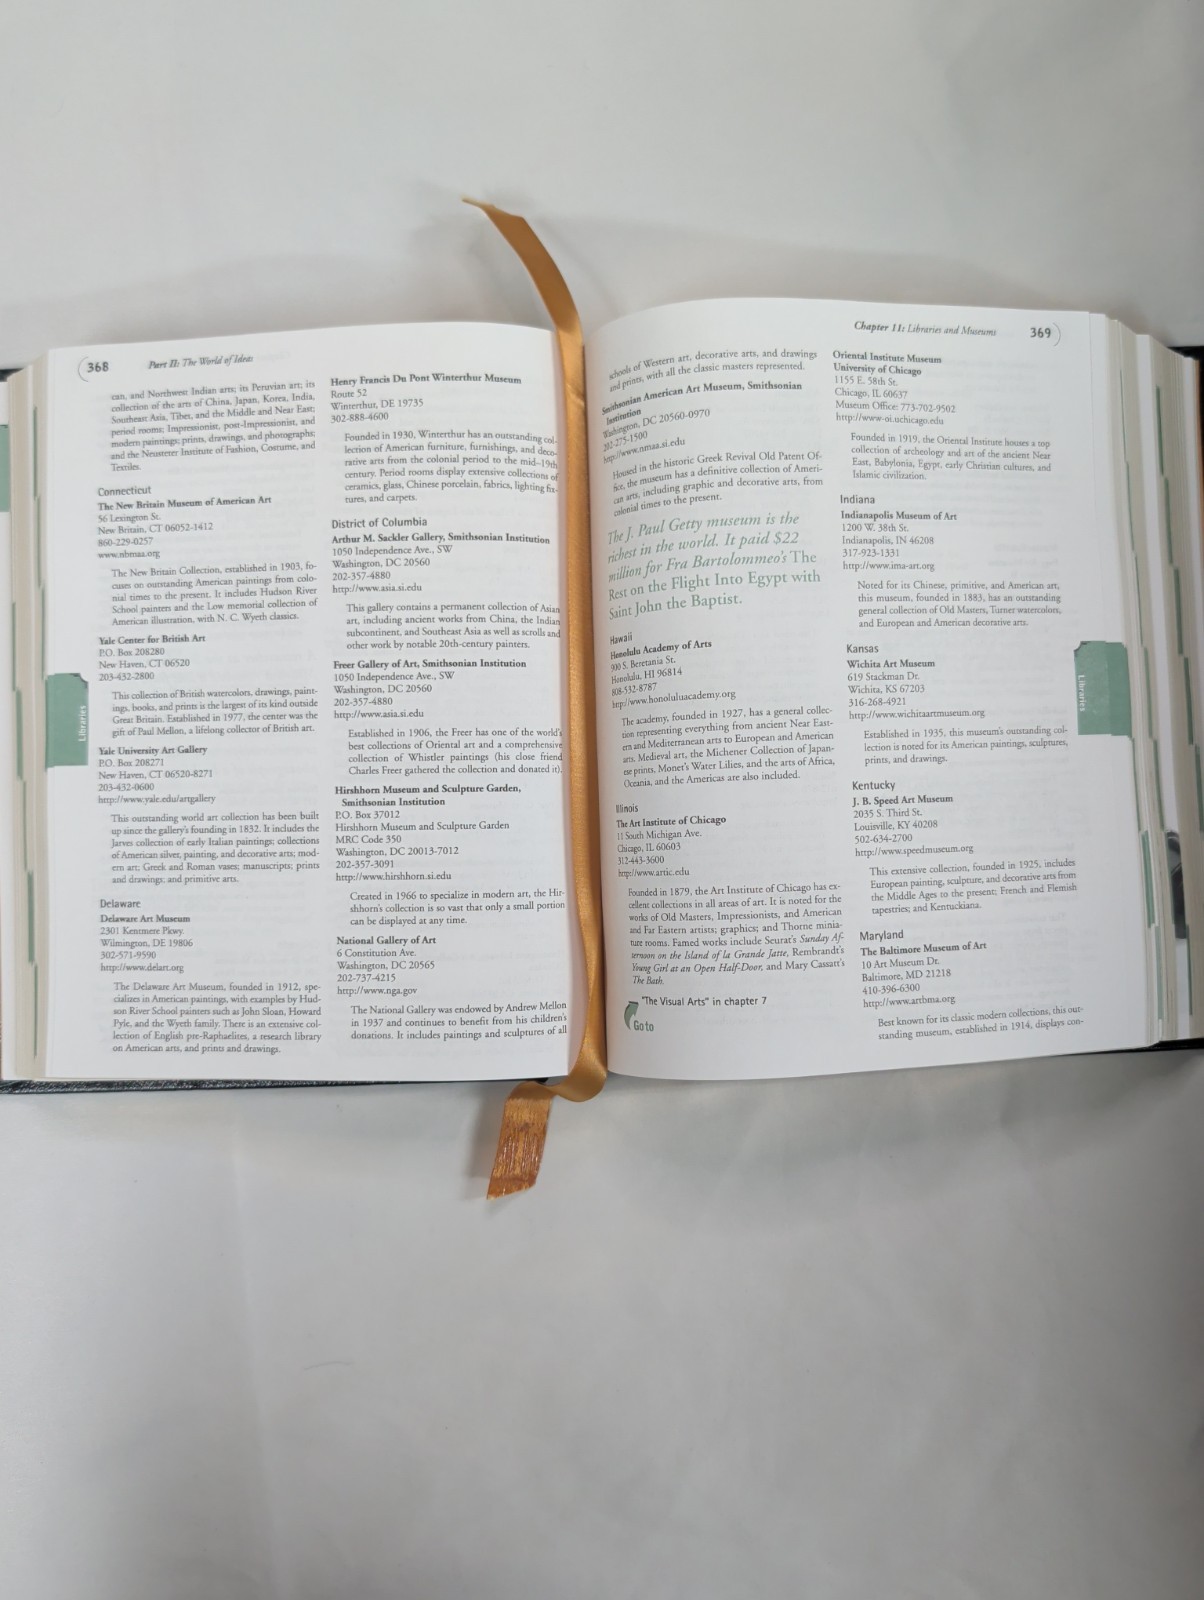 368
Part II: The World of Ideas
can, and Northwest Indian arts; its Peruvian art; its
collection of the arts of China, Japan, Korea, India,
Southeast Asia, Tibet, and the Middle and Near East;
period rooms; Impressionist, post-Impressionist, and
modern paintings; prints, drawings, and photographs;
and the Neusteter Institute of Fashion, Costume, and
Textiles.
Connecticut
The New Britain Museum of American Art
56 Lexington St.
New Britain, CT 06052-1412
860-229-0257
www.nbmaa.org
The New Britain Collection, established in 1903, fo-
cuses on outstanding American paintings from colo-
nial times to the present. It includes Hudson River
School painters and the Low memorial collection of
American illustration, with N. C. Wyeth classics.
Yale Center for British Art
P.O. Box 208280
New Haven, CT 06520
203-432-2800
This collection of British watercolors, drawings, paint-
ings, books, and prints is the largest of its kind outside
Great Britain. Established in 1977, the center was the
gift of Paul Mellon, a lifelong collector of British art.
Yale University Art Gallery
P.O. Box 208271
New Haven, CT 06520-8271
203-432-0600
http://www.yale.edu/artgallery
This outstanding world art collection has been built
up since the gallery's founding in 1832. It includes the
Jarves collection of early Italian paintings; collections
of American silver, painting, and decorative arts; mod-
ern art; Greek and Roman vases; manuscripts; prints
and drawings; and primitive arts.
Delaware
Delaware Art Museum
2301 Kentmere Pkwy.
Wilmington, DE 19806
302-571-9590
http://www.delart.org
The Delaware Art Museum, founded in 1912, spe-
cializes in American paintings, with examples by Hud-
son River School painters such as John Sloan, Howard
Pyle, and the Wyeth family. There is an extensive col-
lection of English pre-Raphaelites, a research library
on American arts, and prints and drawings.
Henry Francis Du Pont Winterthur Museum
Route 52
Winterthur, DE 19735
302-888-4600
Founded in 1930, Winterthur has an outstanding col-
lection of American furniture, furnishings, and deco-
rative arts from the colonial period to the mid-19th
century. Period rooms display extensive collections of
ceramics, glass, Chinese porcelain, fabrics, lighting fix-
tures, and carpets.
District of Columbia
Arthur M. Sackler Gallery, Smithsonian Institution
1050 Independence Ave., SW
Washington, DC 20560
202-357-4880
http://www.asia.si.edu
This gallery contains a permanent collection of Asian
art, including ancient works from China, the Indian
subcontinent, and Southeast Asia as well as scrolls and
other work by notable 20th-century painters.
Freer Gallery of Art, Smithsonian Institution
1050 Independence Ave., SW
Washington, DC 20560
202-357-4880
http://www.asia.si.edu
Established in 1906, the Freer has one of the world's
best collections of Oriental art and a comprehensive
collection of Whistler paintings (his close friend
Charles Freer gathered the collection and donated it).
Hirshhorn Museum and Sculpture Garden,
Smithsonian Institution
P.O. Box 37012
Hirshhorn Museum and Sculpture Garden
MRC Code 350
Washington, DC 20013-7012
202-357-3091
http://www.hirshhorn.si.edu
Created in 1966 to specialize in modern art, the Hir-
shhorn's collection is so vast that only a small portion
can be displayed at any time.
National Gallery of Art
6 Constitution Ave.
Washington, DC 20565
202-737-4215
http://www.nga.gov
The National Gallery was endowed by Andrew Mellon
in 1937 and continues to benefit from his children's
donations. It includes paintings and sculptures of all
Libraries
Chapter 11: Libraries and Museums
369
schools of Western art, decorative arts, and drawings
and prints, with all the classic masters represented.
Smithsonian American Art Museum, Smithsonian
Institution
Washington, DC 20560-0970
202-275-1500
http://www.nmaa.si.edu
Housed in the historic Greek Revival Old Patent Of-
fice, the museum has a definitive collection of Ameri-
can arts, including graphic and decorative arts, from
colonial times to the present.
The J. Paul Getty museum is the
richest in the world. It paid $22
million for Fra Bartolommeo's The
Rest on the Flight Into Egypt with
Saint John the Baptist.
Hawaii
Honolulu Academy of Arts
900 S. Beretania St.
Honolulu, HI 96814
808-532-8787
http://www.honoluluacademy.org
The academy, founded in 1927, has a general collec-
tion representing everything from ancient Near East-
ern and Mediterranean arts to European and American
arts. Medieval art, the Michener Collection of Japan-
ese prints, Monet's Water Lilies, and the arts of Africa,
Oceania, and the Americas are also included.
Illinois
The Art Institute of Chicago
11 South Michigan Ave.
Chicago, IL 60603
312-443-3600
http://www.artic.edu
Founded in 1879, the Art Institute of Chicago has ex-
cellent collections in all areas of art. It is noted for the
works of Old Masters, Impressionists, and American
and Far Eastern artists; graphics; and Thorne minia-
ture rooms. Famed works include Seurat's Sunday Af-
ternoon on the Island of la Grande Jatte, Rembrandt's
Young Girl at an Open Half-Door, and Mary Cassatt's
The Bath.
"The Visual Arts" in chapter 7
Go to
Oriental Institute Museum
University of Chicago
1155 E. 58th St.
Chicago, IL 60637
Museum Office: 773-702-9502
http://www-oi.uchicago.edu
Founded in 1919, the Oriental Institute houses a top
collection of archeology and art of the ancient Near
East, Babylonia, Egypt, early Christian cultures, and
Islamic civilization.
Indiana
Indianapolis Museum of Art
1200 W. 38th St.
Indianapolis, IN 46208
317-923-1331
http://www.ima-art.org
Noted for its Chinese, primitive, and American art,
this museum, founded in 1883, has an outstanding
general collection of Old Masters, Turner watercolors,
and European and American decorative arts.
Kansas
Wichita Art Museum
619 Stackman Dr.
Wichita, KS 67203
316-268-4921
http://www.wichitaartmuseum.org
Established in 1935, this museum's outstanding col-
lection is noted for its American paintings, sculptures,
prints, and drawings.
Kentucky
J. B. Speed Art Museum
2035 S. Third St.
Louisville, KY 40208
502-634-2700
http://www.speedmuseum.org
This extensive collection, founded in 1925, includes
European painting, sculpture, and decorative arts from
the Middle Ages to the present; French and Flemish
tapestries; and Kentuckiana.
Maryland
The Baltimore Museum of Art
10 Art Museum Dr.
Baltimore, MD 21218
410-396-6300
http://www.artbma.org
Best known for its classic modern collections, this out-
standing museum, established in 1914, displays con-
Libraries